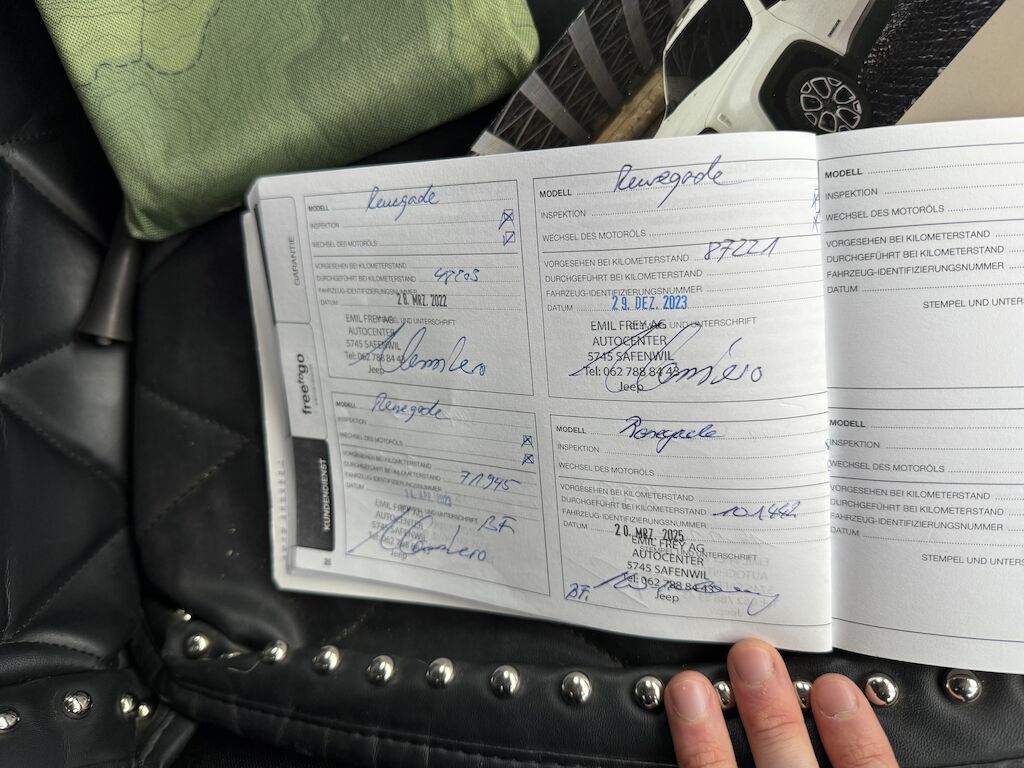 GARANTIE
freetogo
KUNDENDIENST
MODELL Renegade
INSPEKTION
WECHSEL DES MOTORÖLS
VORGESEHEN BEI KILOMETERSTAND
DURCHGEFÜHRT BEI KILOMETERSTAND
FAHRZEUG-IDENTIFIZIERUNGSNUMMER
DATUM 28. MRZ. 2022
STEMPEL UND UNTERSCHRIFT
EMIL FREY AG
AUTOCENTER
5745 SAFENWIL
Tel: 062 788 84 43
Jeep
MODELL Renegade
INSPEKTION
WECHSEL DES MOTORÖLS
VORGESEHEN BEI KILOMETERSTAND
DURCHGEFÜHRT BEI KILOMETERSTAND 71945
FAHRZEUG-IDENTIFIZIERUNGSNUMMER
DATUM APR. 2023
STEMPEL UND UNTERSCHRIFT B.F.
EMIL FREY AG
AUTOCENTER
5745 SAFENWIL
Tel: 062 788
Jeep
MODELL Renegade
INSPEKTION
WECHSEL DES MOTORÖLS
VORGESEHEN BEI KILOMETERSTAND 87221
DURCHGEFÜHRT BEI KILOMETERSTAND
FAHRZEUG-IDENTIFIZIERUNGSNUMMER
DATUM 29. DEZ. 2023
STEMPEL UND UNTERSCHRIFT
EMIL FREY AG
AUTOCENTER
5745 SAFENWIL
Tel: 062 788 84 43
Jeep
MODELL Renegade
INSPEKTION
WECHSEL DES MOTORÖLS
VORGESEHEN BEI KILOMETERSTAND
DURCHGEFÜHRT BEI KILOMETERSTAND 101442
FAHRZEUG-IDENTIFIZIERUNGSNUMMER
DATUM 20. MRZ. 2025
STEMPEL UND UNTERSCHRIFT
EMIL FREY AG
AUTOCENTER
5745 SAFENWIL
Tel: 062 788 84 43
Jeep
B.F.
MODELL
INSPEKTION
WECHSEL DES MOTORÖLS
VORGESEHEN BEI KILOMETERSTAND
DURCHGEFÜHRT BEI KILOMETERSTAND
FAHRZEUG-IDENTIFIZIERUNGSNUMMER
DATUM
STEMPEL UND UNTER
MODELL
INSPEKTION
WECHSEL DES MOTORÖLS
VORGESEHEN BEI KILOMETERSTAND
DURCHGEFÜHRT BEI KILOMETERSTAND
FAHRZEUG-IDENTIFIZIERUNGSNUMMER
DATUM
STEMPEL UND UNTERS